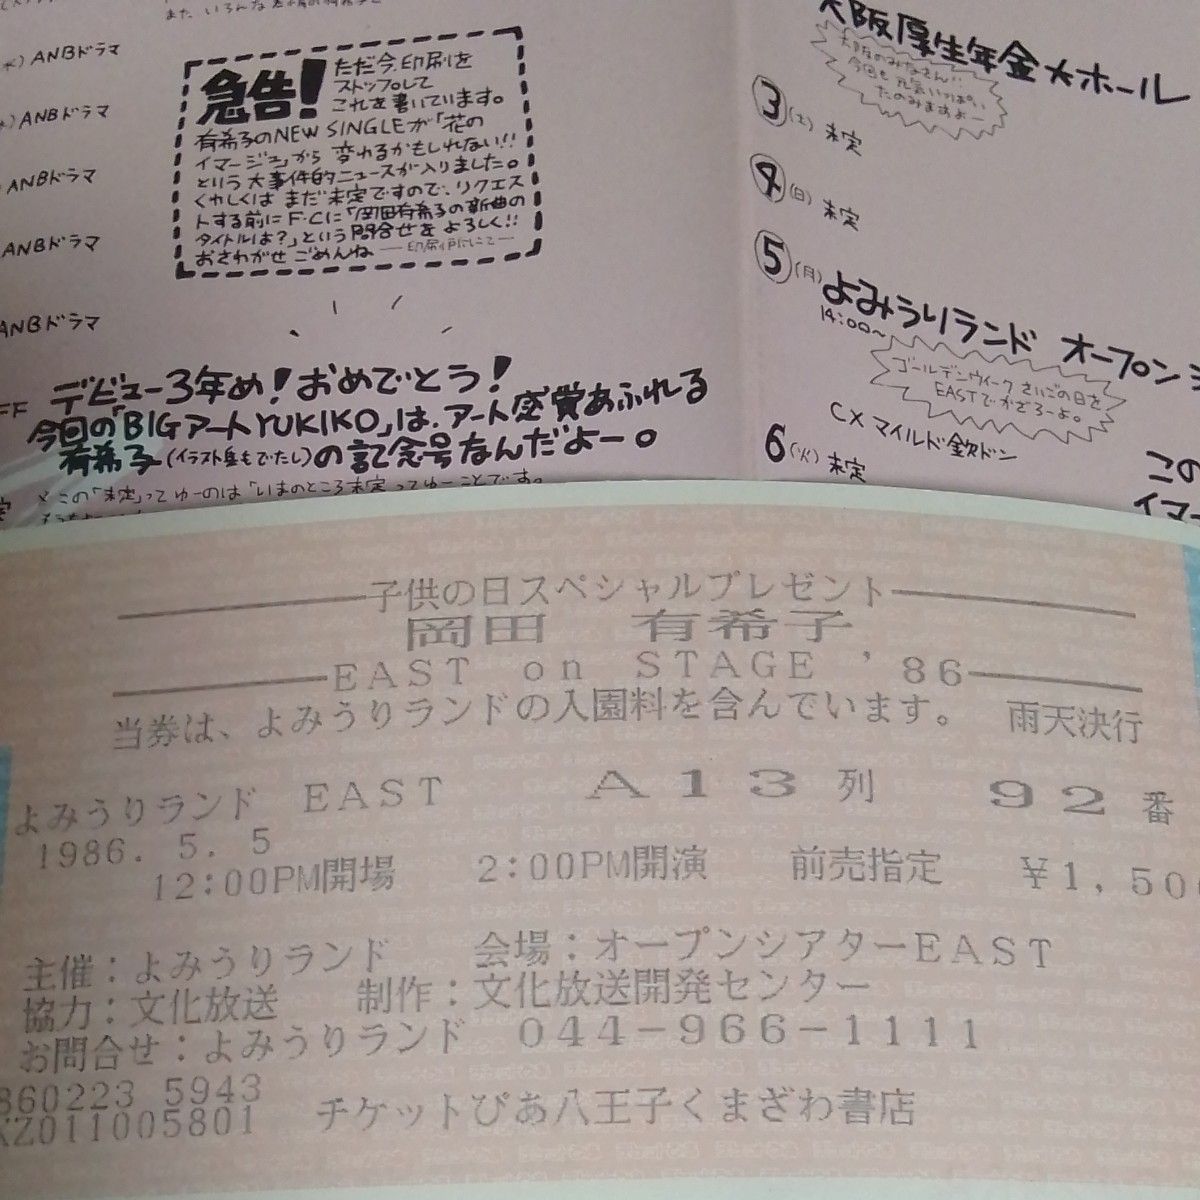 ANBドラマ
ANBドラマ
ANBドラマ
ANBドラマ
ANBドラマ
急告!
ただ今、印刷を
ストップして
これを書いています。
有希子のNEW SINGLEが「花の
イマージュ」から 変わるかもしれない!!
という 大事件的ニュースが入りました。
くわしくは まだ未定ですので、リクエス
トする前に F・Cに「岡田有希子の新曲の
タイトルは?」という 問合せを よろしく!!
おさわがせ ごめんね
デビュー3年め!おめでとう!
今回の「BIGアートYUKIKO」は、アート感覚あふれる
有希子(イラスト集もでたし)の記念号なんだよー。
×この「未定」ってゆーのは「いまのところ未定」ってゆーことです。
大阪厚生年金大ホール
大阪のみなさん!!
今回も元気いっぱい
たのみますよー
3(土) 未定
4(日) 未定
5(月)よみうりランド オープンシ
14:00~
ゴールデンウィークさいごの日を
EASTでかざろーよ。
CX マイルド欽ドン
6(火)未定
この
イマー
子供の日スペシャルプレゼント
岡田 有希子
EAST on STAGE '86
当券は、よみうりランドの入園料を含んでいます。 雨天決行
よみうりランド EAST A13列 92番
1986. 5. 5
12:00PM開場 2:00PM開演 前売指定 ¥1,50
主催:よみうりランド 会場:オープンシアターEAST
協力:文化放送 制作:文化放送開発センター
お問合せ:よみうりランド 044-966-1111
860223 5943
KZ011005801 チケットぴあ八王子くまざわ書店